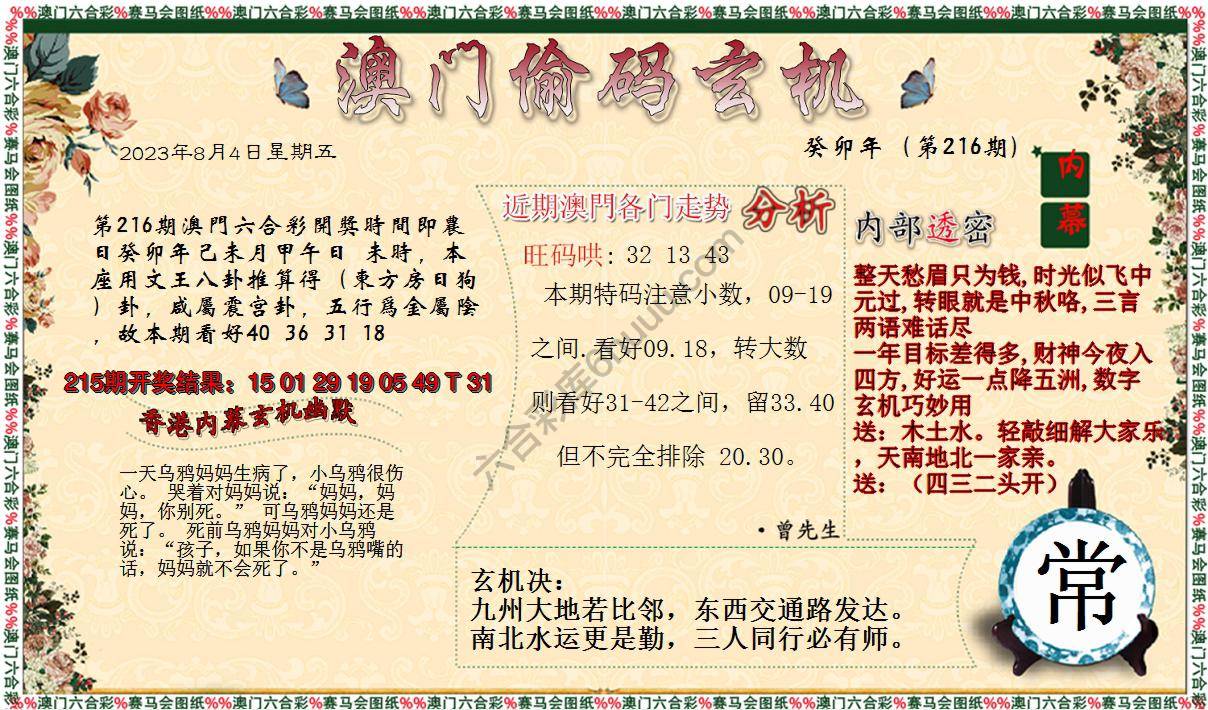 %%澳门六合彩%赛马会图纸%%澳门六合彩%赛马会图纸%%澳门六合彩%赛马会图纸%%澳门六合彩%赛马会图纸%%澳门六合彩%赛马会图纸%%澳门六合彩%赛马会图纸%%
澳门偷码玄机
2023年8月4日星期五
癸卯年（第216期）
内幕
第216期澳門六合彩開獎時間即農
日癸卯年己未月甲午日 未時，本
座用文王八卦推算得（東方房日狗
）卦，咸屬震宫卦，五行爲金屬陰
，故本期看好40 36 31 18
215期开奖结果：15 01 29 19 05 49 T 31
香港内幕玄机幽默
一天乌鸦妈妈生病了，小乌鸦很伤
心。 哭着对妈妈说：“妈妈，妈
妈，你别死。” 可乌鸦妈妈还是
死了。 死前乌鸦妈妈对小乌鸦
说：“孩子，如果你不是乌鸦嘴的
话，妈妈就不会死了。”
近期澳門各门走势 分析
旺码哄: 32 13 43
本期特码注意小数，09-19
之间.看好09.18，转大数
则看好31-42之间，留33.40
但不完全排除 20.30。
·曾先生
内部透密
整天愁眉只为钱,时光似飞中
元过,转眼就是中秋咯,三言
两语难话尽
一年目标差得多,财神今夜入
四方,好运一点降五洲,数字
玄机巧妙用
送：木土水。轻敲细解大家乐
，天南地北一家亲。
送：（四三二头开）
玄机决：
九州大地若比邻，东西交通路发达。
南北水运更是勤，三人同行必有师。
常
%%澳门六合彩%赛马会图纸%%澳门六合彩%赛马会图纸%%澳门六合彩%赛马会图纸%%澳门六合彩%赛马会图纸%%澳门六合彩%赛马会图纸%%澳门六合彩%赛马会图纸%%